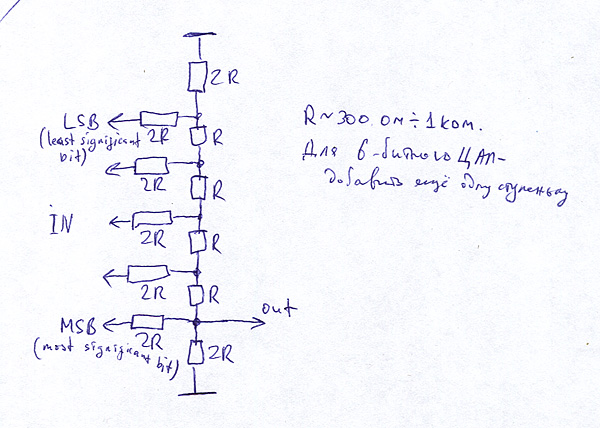 2R
LSB
(least significant
bit)
2R
R
2R
R
IN
2R
R
2R
R
out
MSB
(most significant
bit)
2R
2R
R ~ 300 ом ÷ 1 ком.
Для 6-битного ЦАП-
добавить ещё одну ступеньку